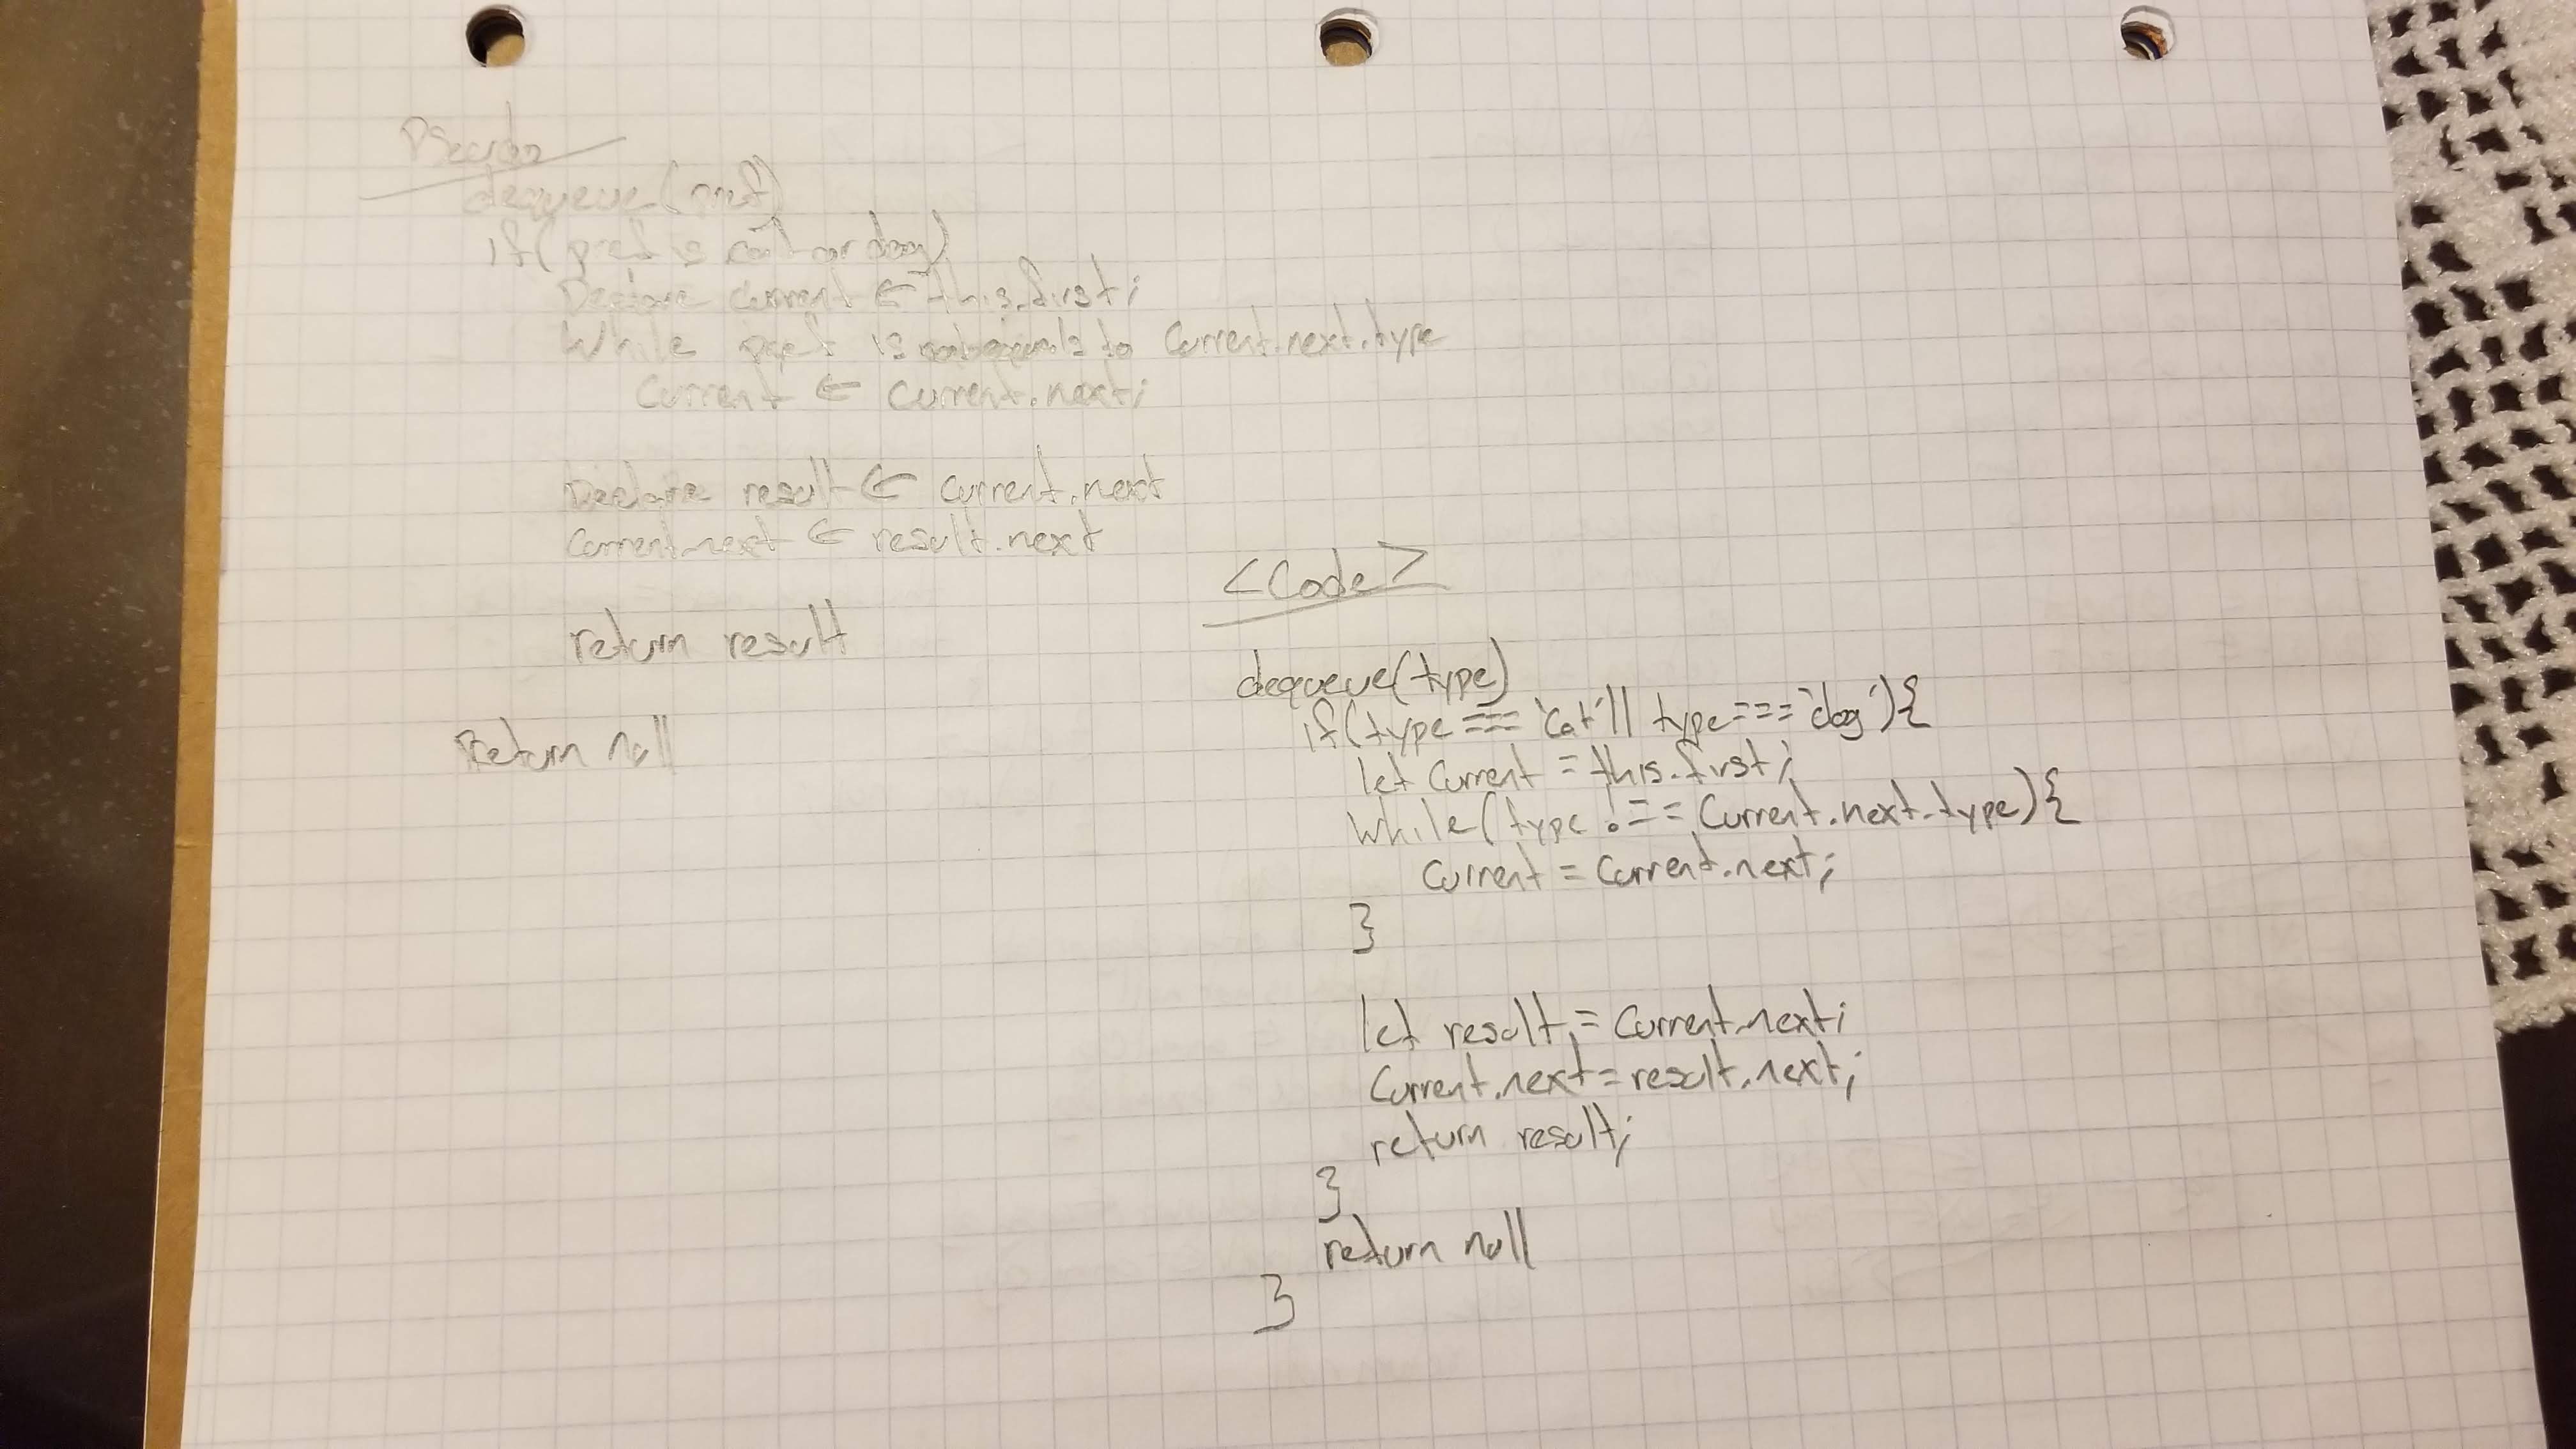 Pseudo
dequeue(pref)
if(pref is cat or dog)
Declare current ← this.first;
While pref is not equals to Current.next.type
Current ← Current.next;
Declare result ← Current.next
Current.next ← result.next
return result
Return null
<Code>
dequeue(type)
if(type === 'cat' || type === 'dog'){
let Current = this.first;
while(type !== Current.next.type){
Current = Current.next;
}
let result = Current.next;
Current.next = result.next;
return result;
}
return null
}